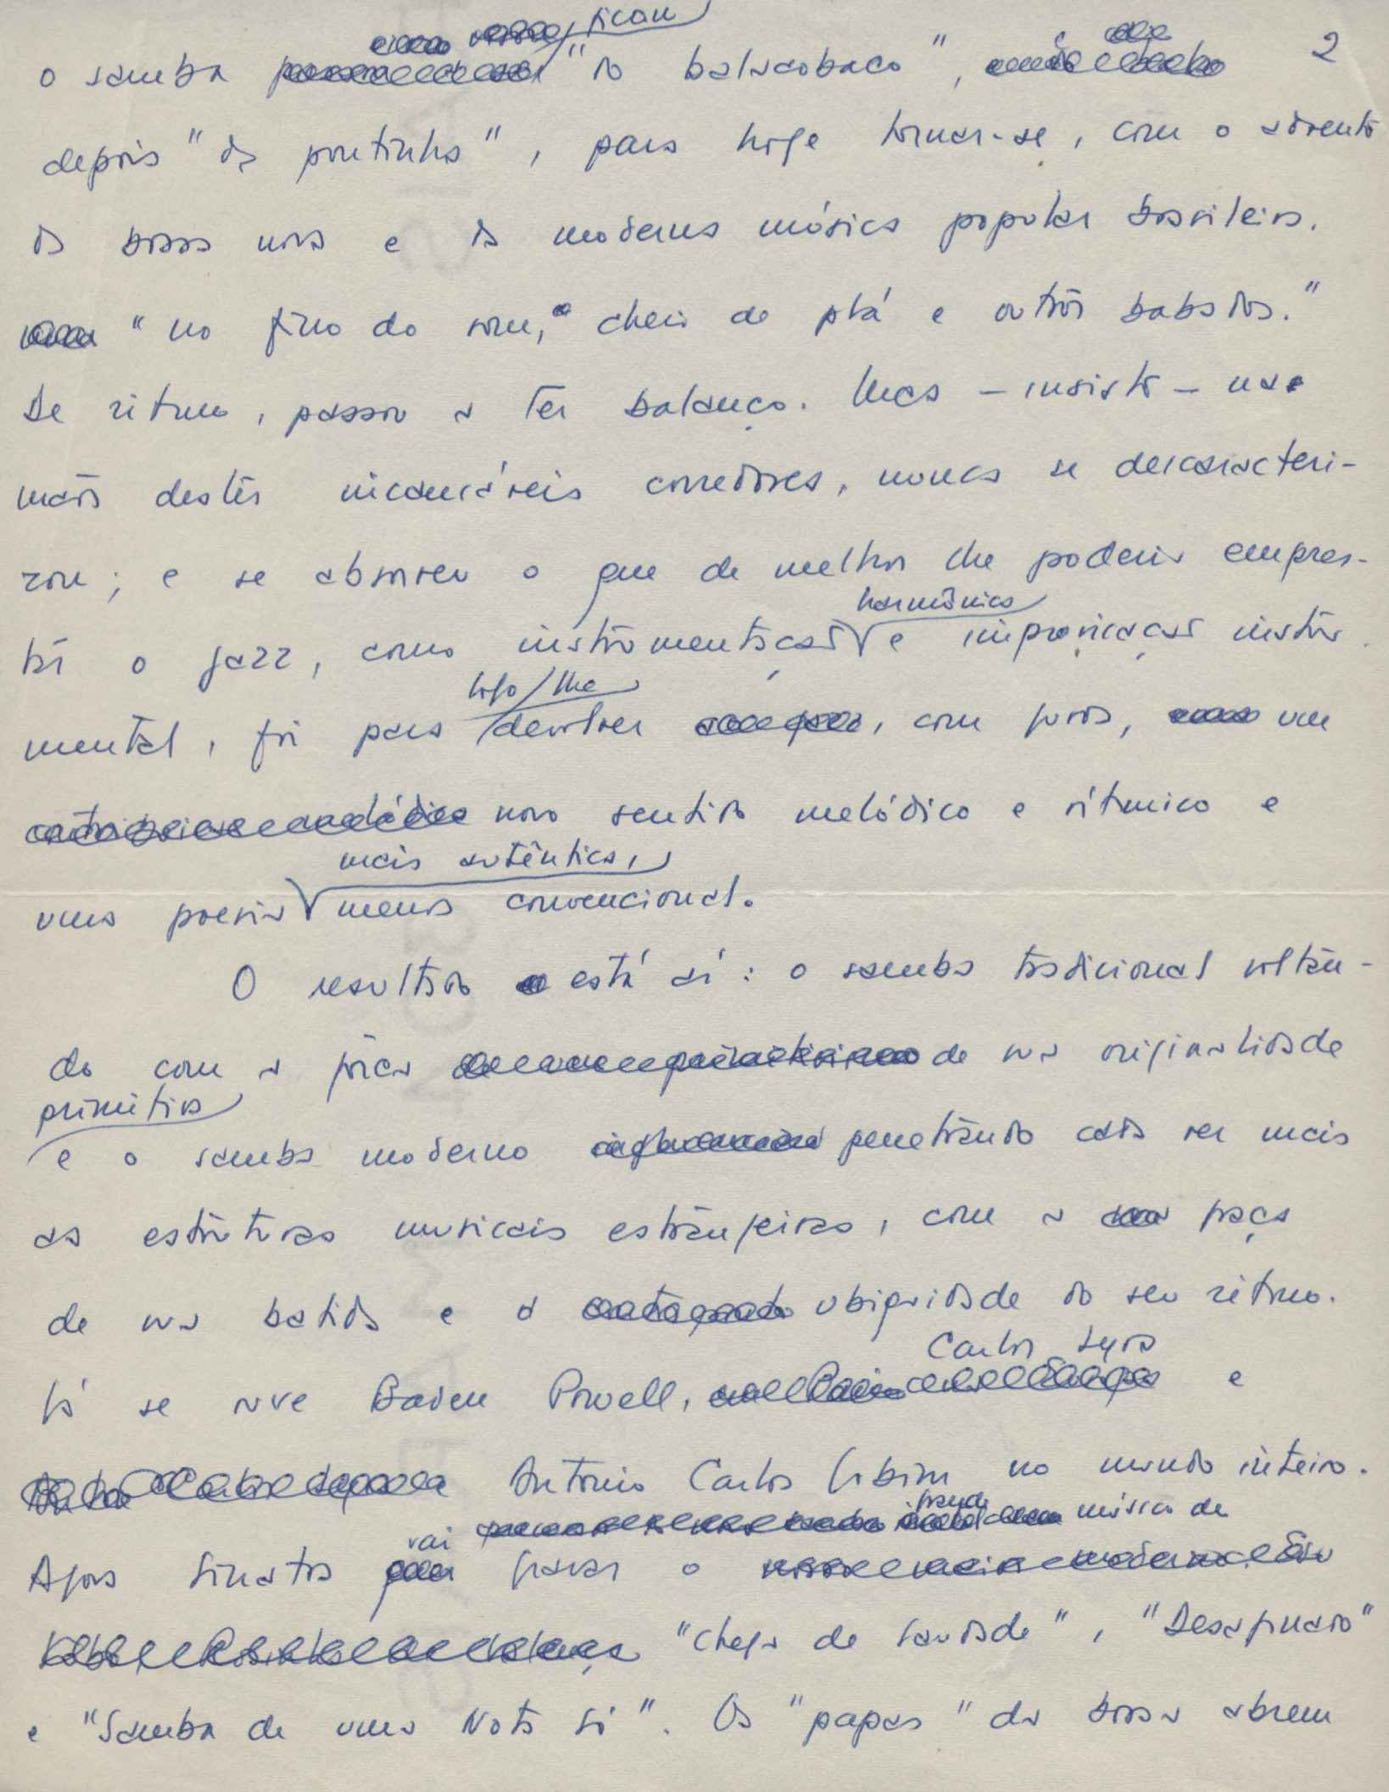 2
ficou
o samba "do balacobaco",
depois "da pontinha", para hoje tornar-se, com o advento
da bossa nova e da moderna música popular brasileira.
"no fino do som," cheio de plá e outros babados."
De ritmo, passou a ter balanço. Mas – insisto – nas
mãos destes incansáveis corredores, nunca se descaracteri-
zou; e se absorveu o que de melhor lhe poderia empres-
harmônica
tar o jazz, como instrumentação e improvisação instru
logo / lhe
mental, foi para devolver, com juros, um
novo sentido melódico e rítmico e
mais autêntica,
uma poesia menos convencional.
O resultado está aí: o samba tradicional voltan-
do com a fôrça de sua originalidade
primitiva
e o samba moderno penetrando cada vez mais
as estruturas musicais estrangeiras, com a graça
de sua batida e a ubiquidade do seu ritmo.
Carlos Lyra
Já se ouve Baden Powell, e
Antonio Carlos Jobim no mundo inteiro.
música de
vai
Agora Sinatra gravar o
"Chega de Saudade", "Desafinado"
e "Samba de uma Nota Só". Os "papas" da bossa abrem